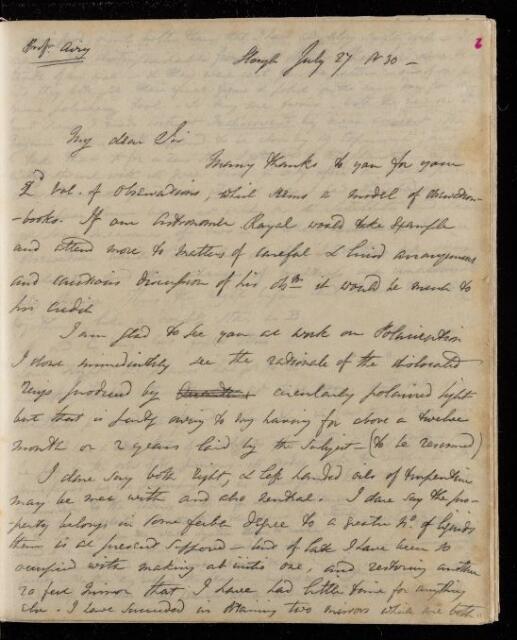 Profr. Airy
2
Slough July 27 1830 –
My dear Sir
Many thanks to you for your
2d Vol. of Observations, which seems a model of
-books. If our Astronomer Royal would take example
and attend more to matters of careful & lucid arrangement
and cautious discussion of his obns it would be much to
his credit
I am glad to see you at work on Polarization
I do not immediately see the rationale of the dislocated
rings produced by circularly polarized light
but that is partly owing to my having for above a twelve
month or 2 years laid by the subject – (to be resumed)
I dare say both right, & left handed oils of turpentine
may be met with and also neutral. I dare say the pro-
-perty belongs in some feeble degree to a greater No. of liquids
than is at present supposed – but of late I have been so
occupied with making ab initio one, and restoring another
20 feet mirror that I have had little time for anything
else. I have succeeded in obtaining two mirrors which are both